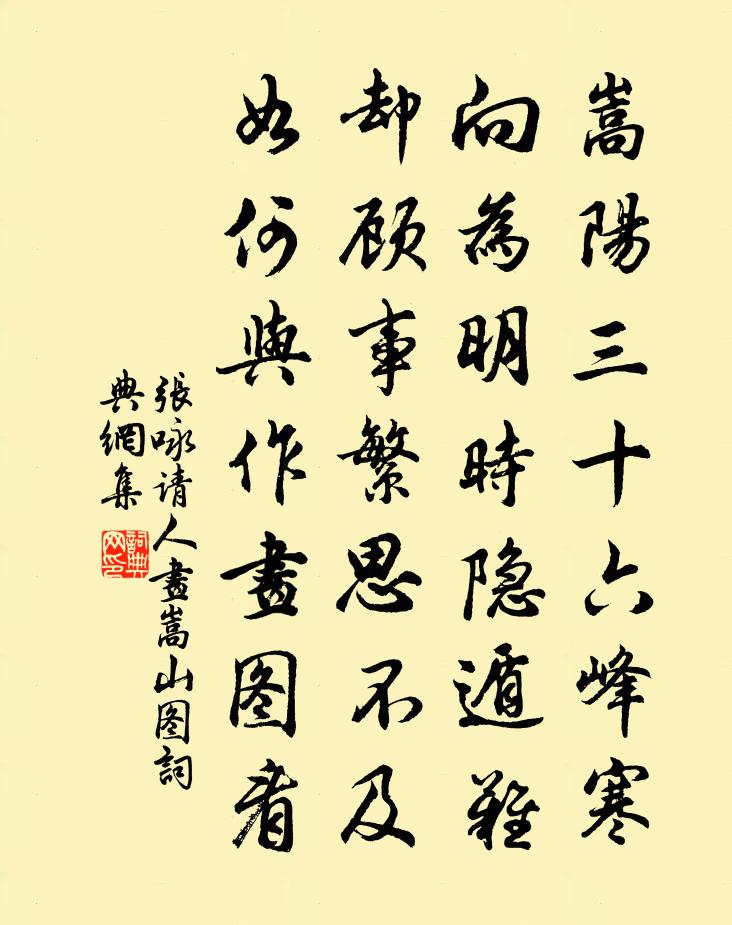 嵩陽三十六峰寒
向為明時隐遁難
却顾事繁思不及
如何與作畫图看
張咏请人畫嵩山图詞
典網集
詞典
网印